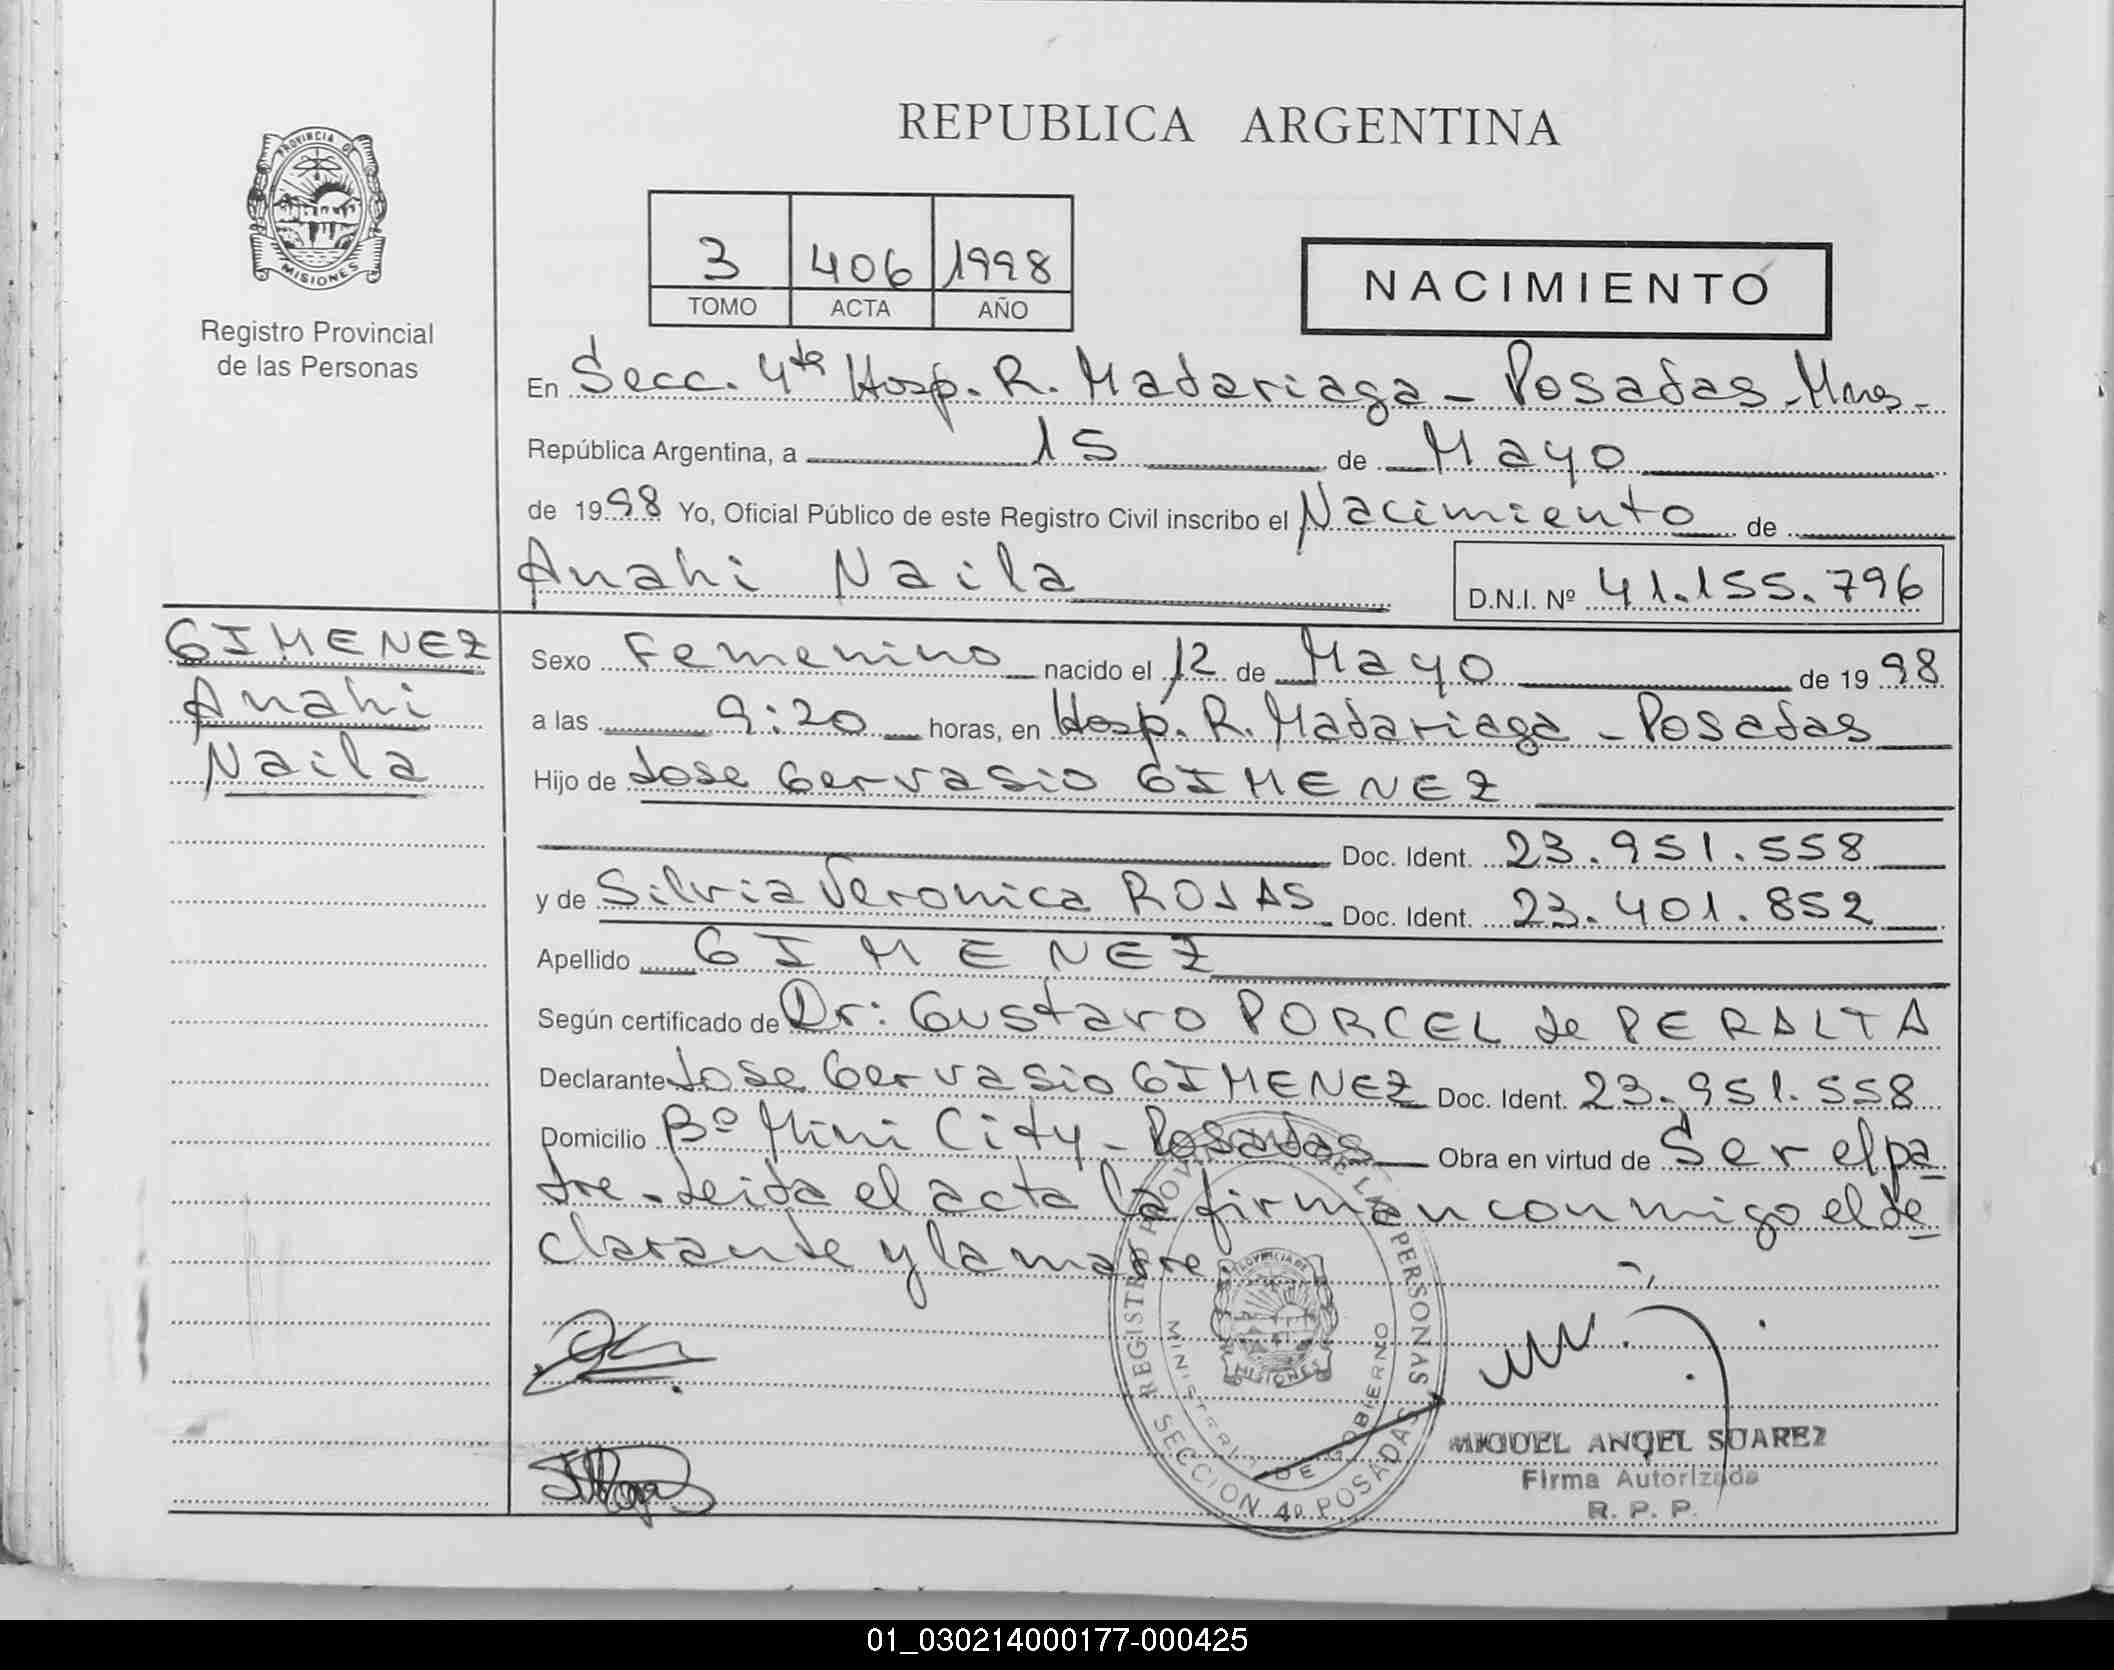 REPUBLICA ARGENTINA
PROVINCIA DE
MISIONES
Registro Provincial
de las Personas
3 406 1998
TOMO ACTA AÑO
NACIMIENTO
En Secc. 4ta Hosp. R. Madariaga - Posadas - Mnes -
República Argentina, a 15 de Mayo
de 1998 Yo, Oficial Público de este Registro Civil inscribo el Nacimiento de
Anahi Naila D.N.I. Nº 41.155.796
GIMENEZ
Anahi
Naila
Sexo Femenino nacido el 12 de Mayo de 1998
a las 9:20 horas, en Hosp. R. Madariaga - Posadas
Hijo de Jose Gervasio GIMENEZ
Doc. Ident. 23.951.558
y de Silvia Veronica ROJAS Doc. Ident. 23.401.852
Apellido GIMENEZ
Según certificado de Dr: Gustavo PORCEL de PERALTA
Declarante Jose Gervasio GIMENEZ Doc. Ident. 23.951.558
Domicilio Bº Mini City - Posadas Obra en virtud de Ser el pa
dre - Leida el acta la firman conmigo el de
clarante y la madre.
REGISTRO PROVINCIAL DE LAS PERSONAS
MINISTERIO DE GOBIERNO
PROVINCIA DE
MISIONES
SECCION 4º POSADAS
MIGUEL ANGEL SUAREZ
Firma Autorizada
R. P. P.
01_030214000177-000425